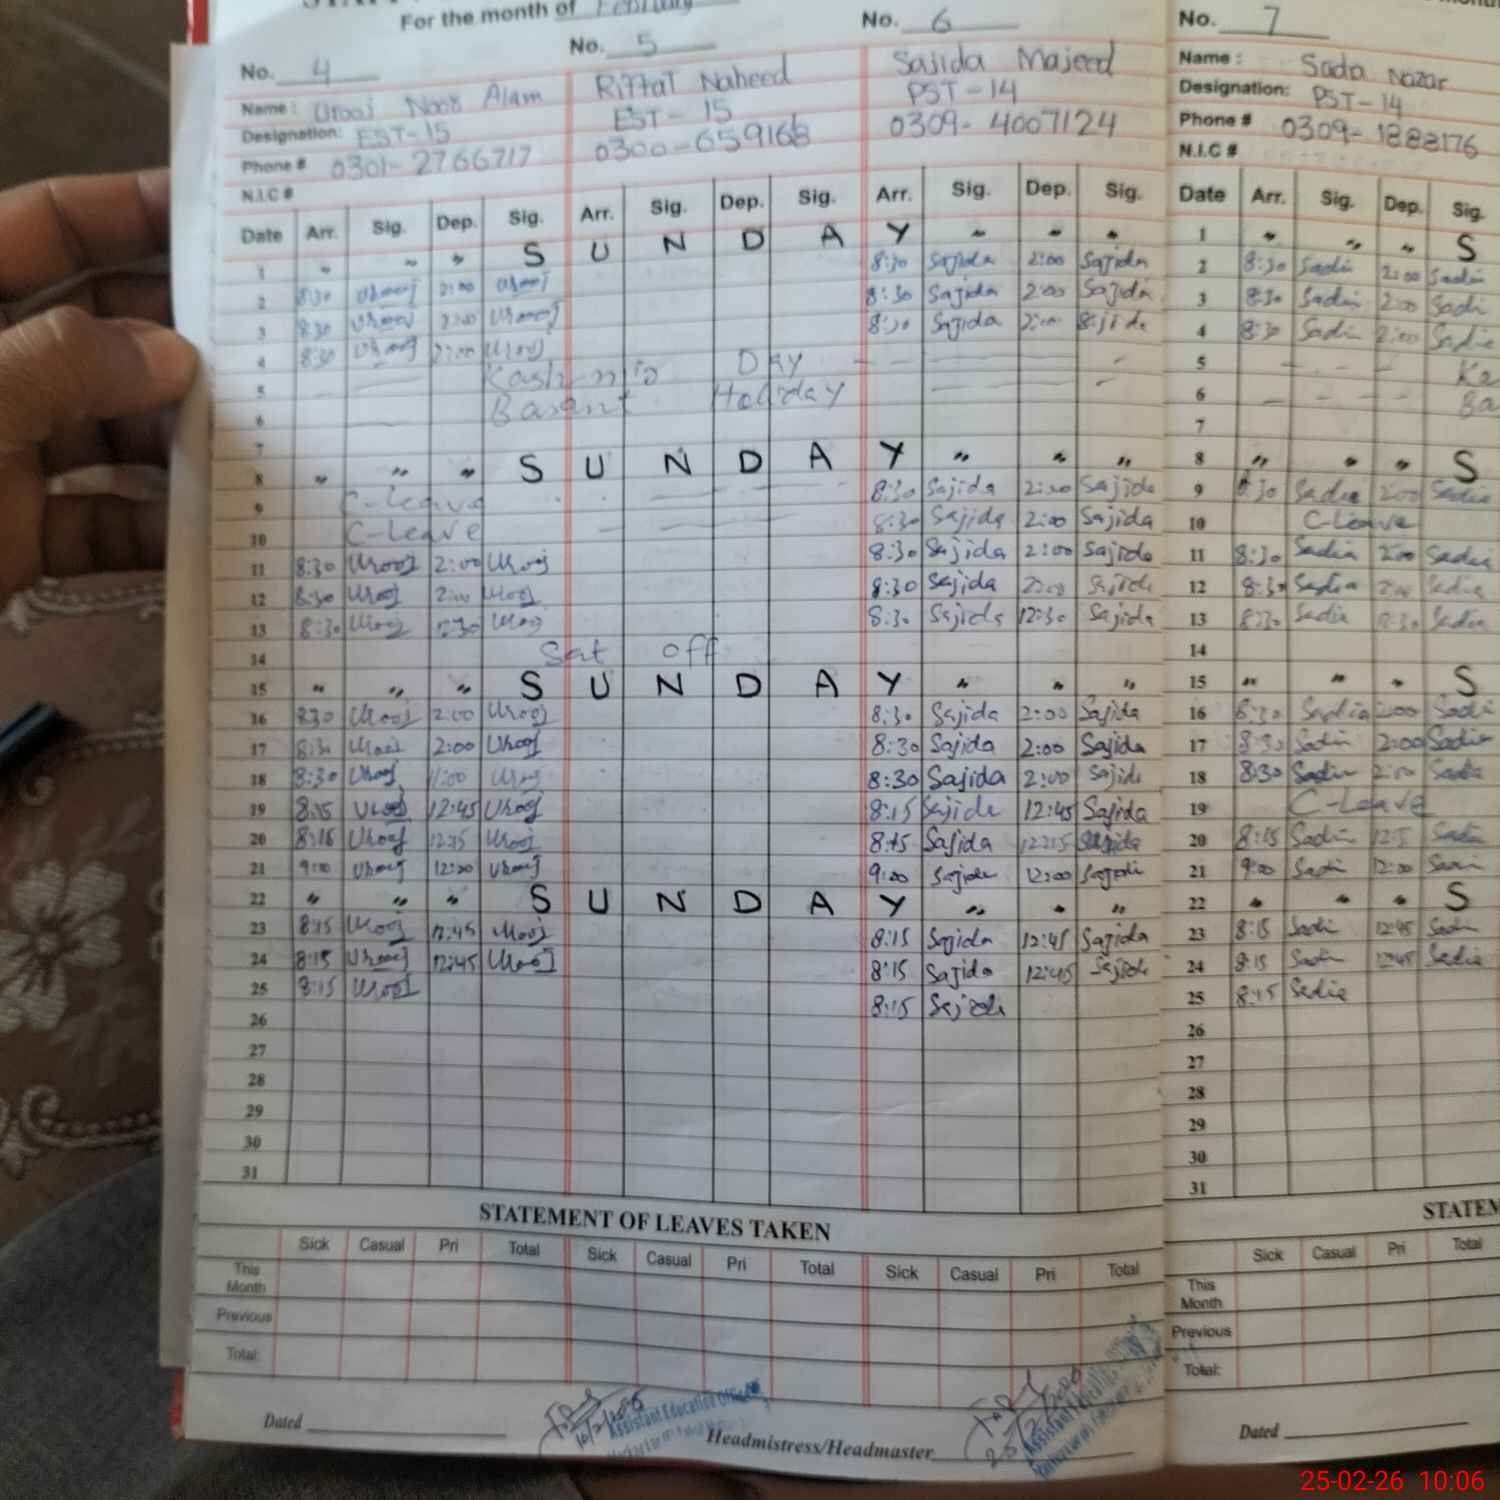 For the month of February
No. 4
No. 5
No. 6
No. 7
Name: Urooj Noor Alam
Designation: EST-15
Phone # 0301-2766717
N.I.C #
Riffat Naheed
EST-15
0300-659168
Sajida Majeed
PST-14
0309-4007124
Name: Sada Nazar
Designation: PST-14
Phone # 0309-1888176
N.I.C #
Date Arr. Sig. Dep. Sig. Arr. Sig. Dep. Sig. Arr. Sig. Dep. Sig. Date Arr. Sig. Dep. Sig.
1 " " " S U N D A Y " " " 1 " " " S
2 8:30 Urooj 2:00 Urooj 8:30 Sajida 2:00 Sajida 2 8:30 Sadia 2:00 Sadia
3 8:30 Urooj 2:00 Urooj 8:30 Sajida 2:00 Sajida 3 8:30 Sadia 2:00 Sadia
4 8:30 Urooj 2:00 Urooj 8:30 Sajida 2:00 Sajida 4 8:30 Sadia 2:00 Sadia
5 Kashmir Day 5 Ka
6 Basant Holiday 6 Ba
7 7
8 " " " S U N D A Y " " " 8 " " " S
9 C-Leave 8:30 Sajida 2:00 Sajida 9 8:30 Sadia 2:00 Sadia
10 C-Leave 8:30 Sajida 2:00 Sajida 10 C-Leave
11 8:30 Urooj 2:00 Urooj 8:30 Sajida 2:00 Sajida 11 8:30 Sadia 2:00 Sadia
12 8:30 Urooj 2:00 Urooj 8:30 Sajida 2:00 Sajida 12 8:30 Sadia 2:00 Sadia
13 8:30 Urooj 12:30 Urooj 8:30 Sajida 12:30 Sajida 13 8:30 Sadia 12:30 Sadia
14 Sat off 14
15 " " " S U N D A Y " " " 15 " " " S
16 8:30 Urooj 2:00 Urooj 8:30 Sajida 2:00 Sajida 16 8:30 Sadia 2:00 Sadi
17 8:30 Urooj 2:00 Urooj 8:30 Sajida 2:00 Sajida 17 8:30 Sadia 2:00 Sadia
18 8:30 Urooj Urooj 8:30 Sajida 2:00 Sajida 18 8:30 Sadia 2:00 Sadia
19 8:15 Urooj 12:45 Urooj 8:15 Sajida 12:45 Sajida 19 C-Leave
20 Urooj Urooj 8:15 Sajida Sajida 20 8:15 Sadia Sadia
21 9:00 Urooj 12:00 Urooj 9:00 Sajida 12:00 Sajida 21 9:00 Sadia 12:00 Sadia
22 " " " S U N D A Y " " " 22 " " " S
23 8:15 Urooj 12:45 Urooj 8:15 Sajida 12:45 Sajida 23 8:15 Sadia 12:45 Sadia
24 8:15 Urooj 12:45 Urooj 8:15 Sajida 12:45 Sajida 24 8:15 Sadia 12:45 Sadia
25 8:15 Urooj 8:15 Sajida 25 8:15 Sadia
26 26
27 27
28 28
29 29
30 30
31 31
STATEMENT OF LEAVES TAKEN
STATEM
Sick Casual Pri Total Sick Casual Pri Total Sick Casual Pri Total Sick Casual Pri Total
This Month This Month
Previous Previous
Total: Total:
Assistant Education Officer
Dated Headmistress/Headmaster Dated
25-02-26 10:06